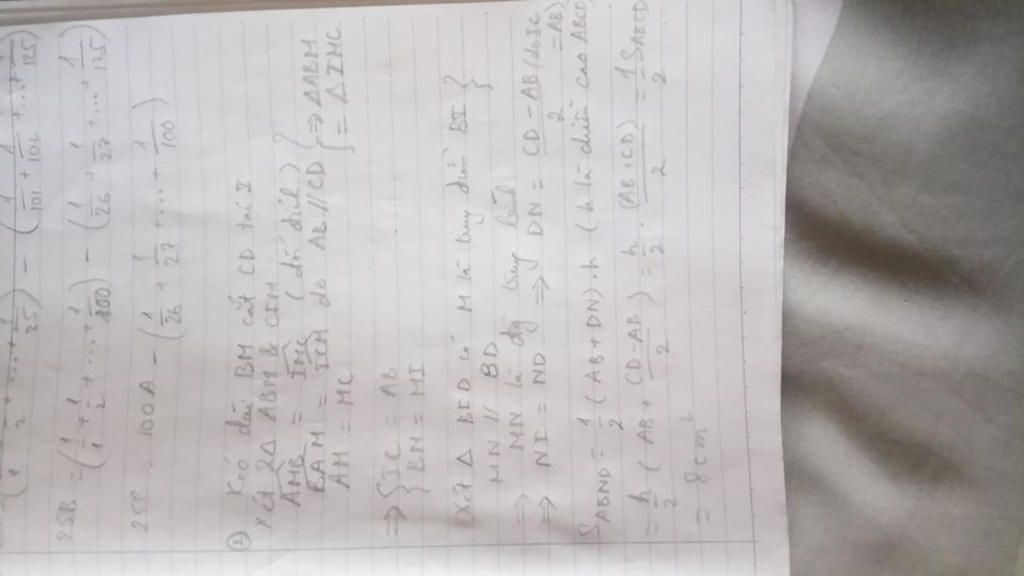 (1/1 + 1/2 + .... + 1/25) - (1/101 + 1/102 + ... + 1/125)
25B = (1/1 + 1/2 + ... + 1/100) - (1/26 + 1/27 + ... + 1/125)
100A - (1/26 + 1/27 + .... + 1/100)
② Kéo dài BM cắt CD tại I
Xét 2Δ ABM & CIM
AMB = IMC (đối đỉnh)
BAM = ICM do AB//CD } => ΔABM = ΔIMC
AM = MC
=> { IC = AB
BM = MI
Xét Δ BID có M là trung điểm BI }
MN // BD
=> MN là đg trung bình
=> NI = ND => DN = CD - AB / 2 (do IC = AB)
S ABND = 1/2 (AB + DN).h (h là chiều cao ABCD)
= h/2 (AB + CD-AB/2) = h/2 . (AB+CD)/2 = 1/2 S ABCD
= 8cm²